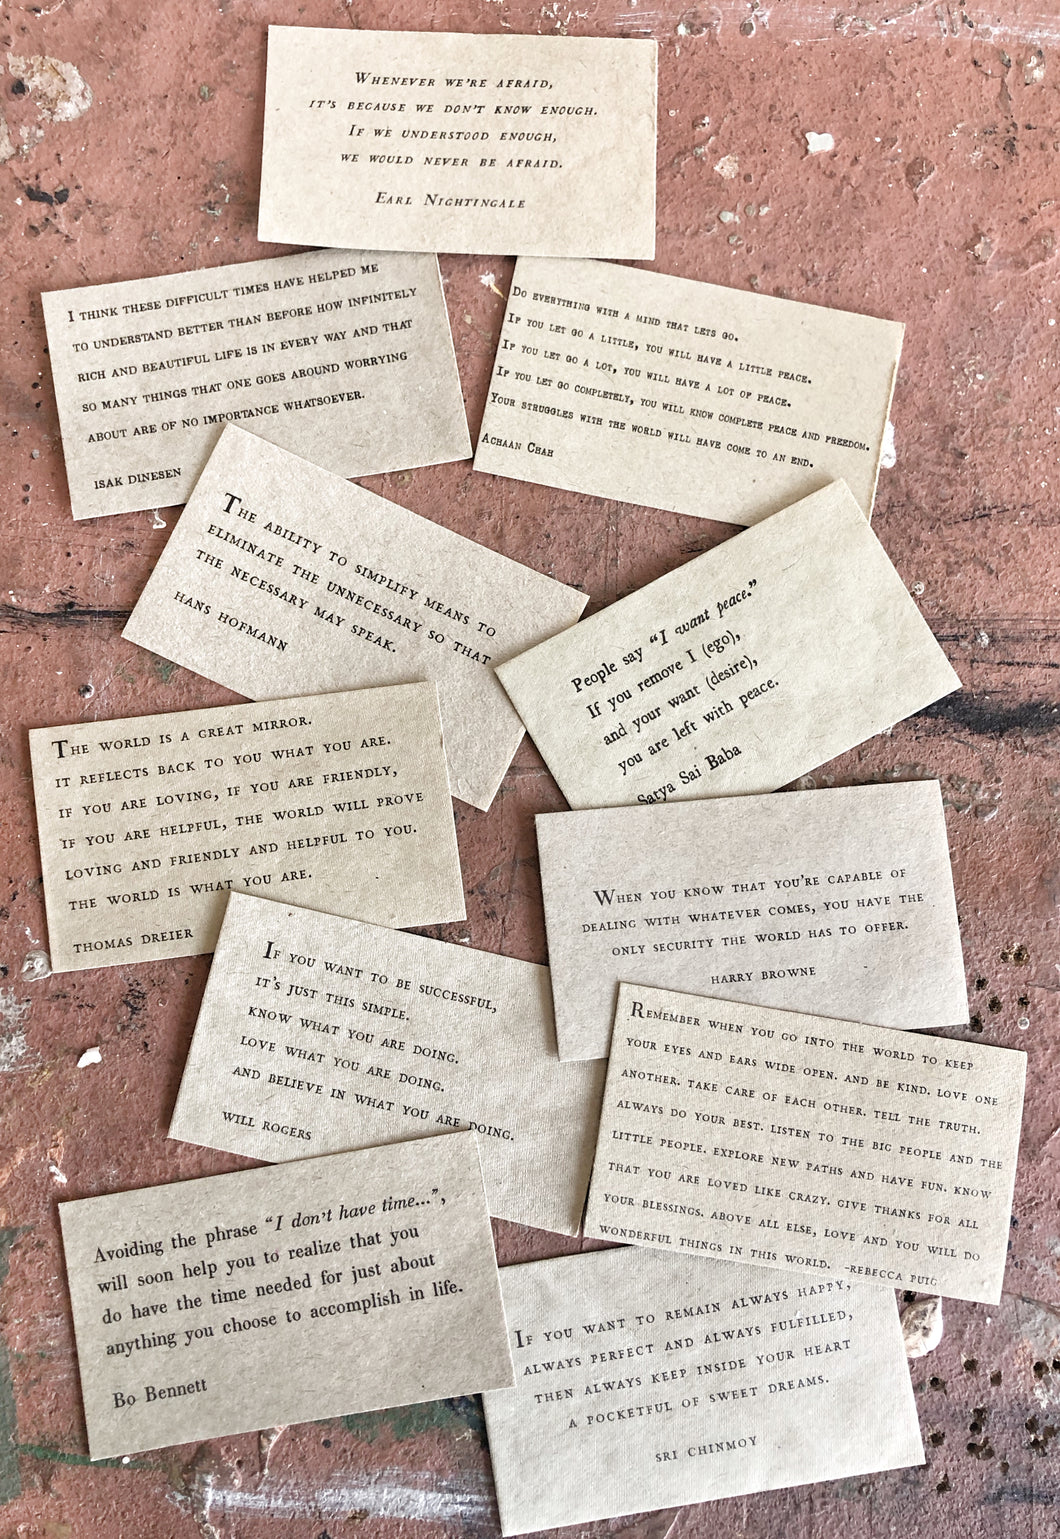 WHENEVER WE'RE AFRAID,
IT'S BECAUSE WE DON'T KNOW ENOUGH.
IF WE UNDERSTOOD ENOUGH,
WE WOULD NEVER BE AFRAID.
EARL NIGHTINGALE
I THINK THESE DIFFICULT TIMES HAVE HELPED ME
TO UNDERSTAND BETTER THAN BEFORE HOW INFINITELY
RICH AND BEAUTIFUL LIFE IS IN EVERY WAY AND THAT
SO MANY THINGS THAT ONE GOES AROUND WORRYING
ABOUT ARE OF NO IMPORTANCE WHATSOEVER.
ISAK DINESEN
DO EVERYTHING WITH A MIND THAT LETS GO.
IF YOU LET GO A LITTLE, YOU WILL HAVE A LITTLE PEACE.
IF YOU LET GO A LOT, YOU WILL HAVE A LOT OF PEACE.
IF YOU LET GO COMPLETELY, YOU WILL KNOW COMPLETE PEACE AND FREEDOM.
YOUR STRUGGLES WITH THE WORLD WILL HAVE COME TO AN END.
ACHAAN CHAH
THE ABILITY TO SIMPLIFY MEANS TO
ELIMINATE THE UNNECESSARY SO THAT
THE NECESSARY MAY SPEAK.
HANS HOFMANN
People say “I want peace.”
If you remove I (ego),
and your want (desire),
you are left with peace.
Satya Sai Baba
THE WORLD IS A GREAT MIRROR.
IT REFLECTS BACK TO YOU WHAT YOU ARE.
IF YOU ARE LOVING, IF YOU ARE FRIENDLY,
IF YOU ARE HELPFUL, THE WORLD WILL PROVE
LOVING AND FRIENDLY AND HELPFUL TO YOU.
THE WORLD IS WHAT YOU ARE.
THOMAS DREIER
WHEN YOU KNOW THAT YOU'RE CAPABLE OF
DEALING WITH WHATEVER COMES, YOU HAVE THE
ONLY SECURITY THE WORLD HAS TO OFFER.
HARRY BROWNE
IF YOU WANT TO BE SUCCESSFUL,
IT'S JUST THIS SIMPLE.
KNOW WHAT YOU ARE DOING.
LOVE WHAT YOU ARE DOING.
AND BELIEVE IN WHAT YOU ARE DOING.
WILL ROGERS
REMEMBER WHEN YOU GO INTO THE WORLD TO KEEP
YOUR EYES AND EARS WIDE OPEN. AND BE KIND. LOVE ONE
ANOTHER. TAKE CARE OF EACH OTHER. TELL THE TRUTH.
ALWAYS DO YOUR BEST. LISTEN TO THE BIG PEOPLE AND THE
LITTLE PEOPLE. EXPLORE NEW PATHS AND HAVE FUN. KNOW
THAT YOU ARE LOVED LIKE CRAZY. GIVE THANKS FOR ALL
YOUR BLESSINGS. ABOVE ALL ELSE, LOVE AND YOU WILL DO
WONDERFUL THINGS IN THIS WORLD. -REBECCA PUIG
Avoiding the phrase “I don't have time...”,
will soon help you to realize that you
do have the time needed for just about
anything you choose to accomplish in life.
Bo Bennett
IF YOU WANT TO REMAIN ALWAYS HAPPY,
ALWAYS PERFECT AND ALWAYS FULFILLED,
THEN ALWAYS KEEP INSIDE YOUR HEART
A POCKETFUL OF SWEET DREAMS.
SRI CHINMOY